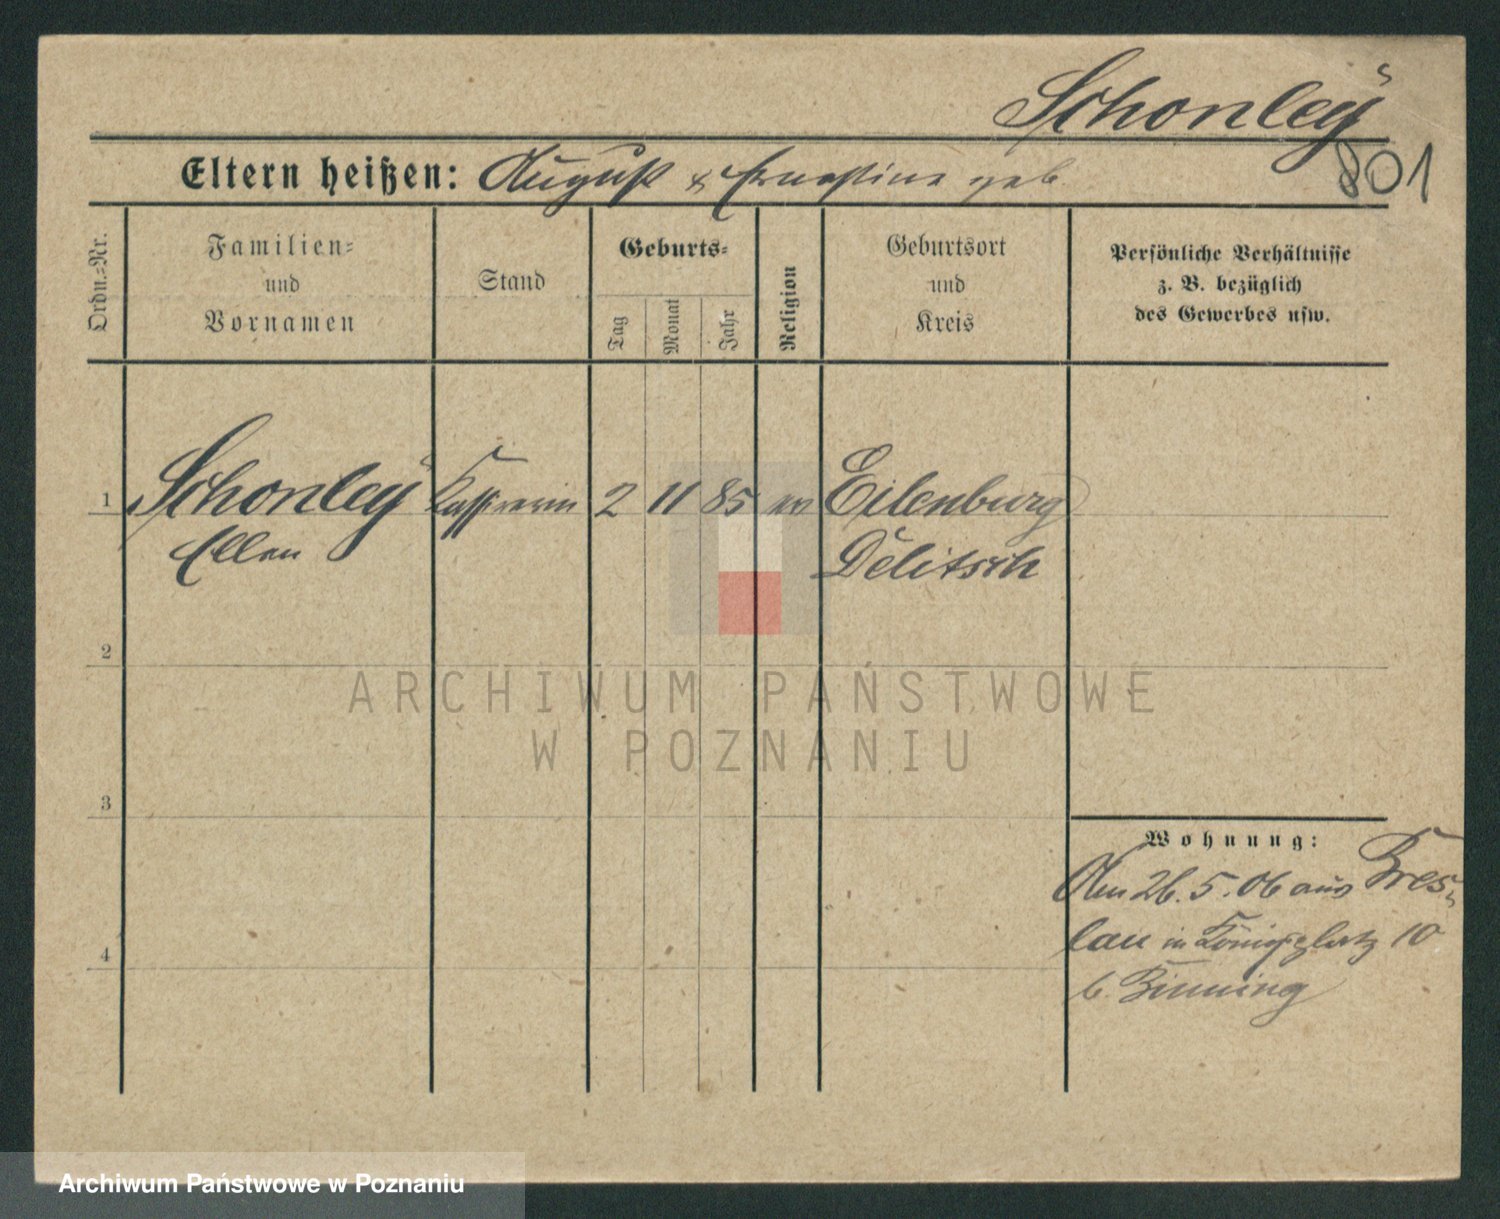 Schonley
801
Eltern heißen: August & Ernestine geb.
Ordn.-Nr.
Familien-
und
Vornamen
Stand
Geburts-
Tag
Monat
Jahr
Religion
Geburtsort
und
Kreis
Persönliche Verhältnisse
z. B. bezüglich
des Gewerbes usw.
1 Schonley Kassirerin 2 11 85 ev Eilenburg
Ellen Delitsch
2
ARCHIWUM PAŃSTWOWE
W POZNANIU
3
Wohnung:
Am 26. 5. 06 aus Bres-
lau in Königsplatz 10
4
b. Binning
Archiwum Państwowe w Poznaniu